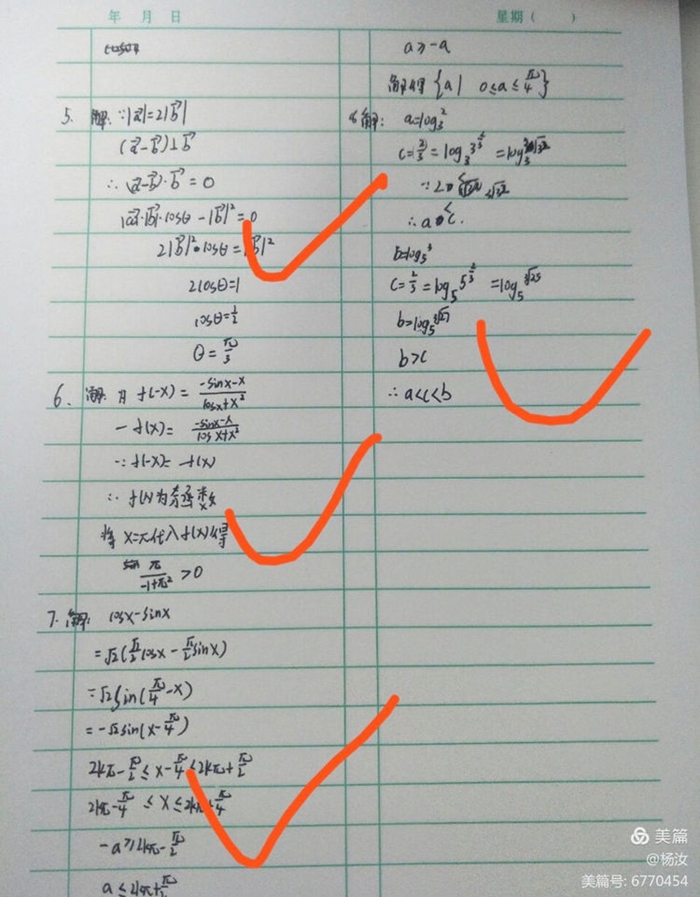 年 月 日
星期 ( )
5. 解: ∵|a⃗|=2|b⃗|
(a⃗-b⃗)⊥b⃗
∴ (a⃗-b⃗)·b⃗=0
|a⃗|·|b⃗|·cosθ-|b⃗|²=0
2|b⃗|²·cosθ=|b⃗|²
2cosθ=1
cosθ=1/2
θ=π/3
6. 解: f(-x)=(-sinx-x)/(cosx+x²)
-f(x)=(-sinx-x)/(cosx+x²)
∵f(-x)=-f(x)
∴ f(x)为奇函数
将x=π代入f(x)得
π/(-1+π²)>0
7. 解: cosx-sinx
=√2(√2/2cosx-√2/2sinx)
=√2sin(π/4-x)
=-√2sin(x-π/4)
2kπ-π/2≤x-π/4≤2kπ+π/2
2kπ-π/4≤x≤2kπ+π/4
-a≥2kπ-π/2
a≤2kπ+π/2
a≥-a
解得{a| 0≤a≤π/4}
8 解: a=log₃²
c=2/3=log₃3^(2/3)=log₃
∴a<c.
b=log₅³
c=2/3=log₅5^(2/3)=log₅∛25
b=log₅∛27
b>c
∴a<c<b
美篇
@杨汝
美篇号: 6770454